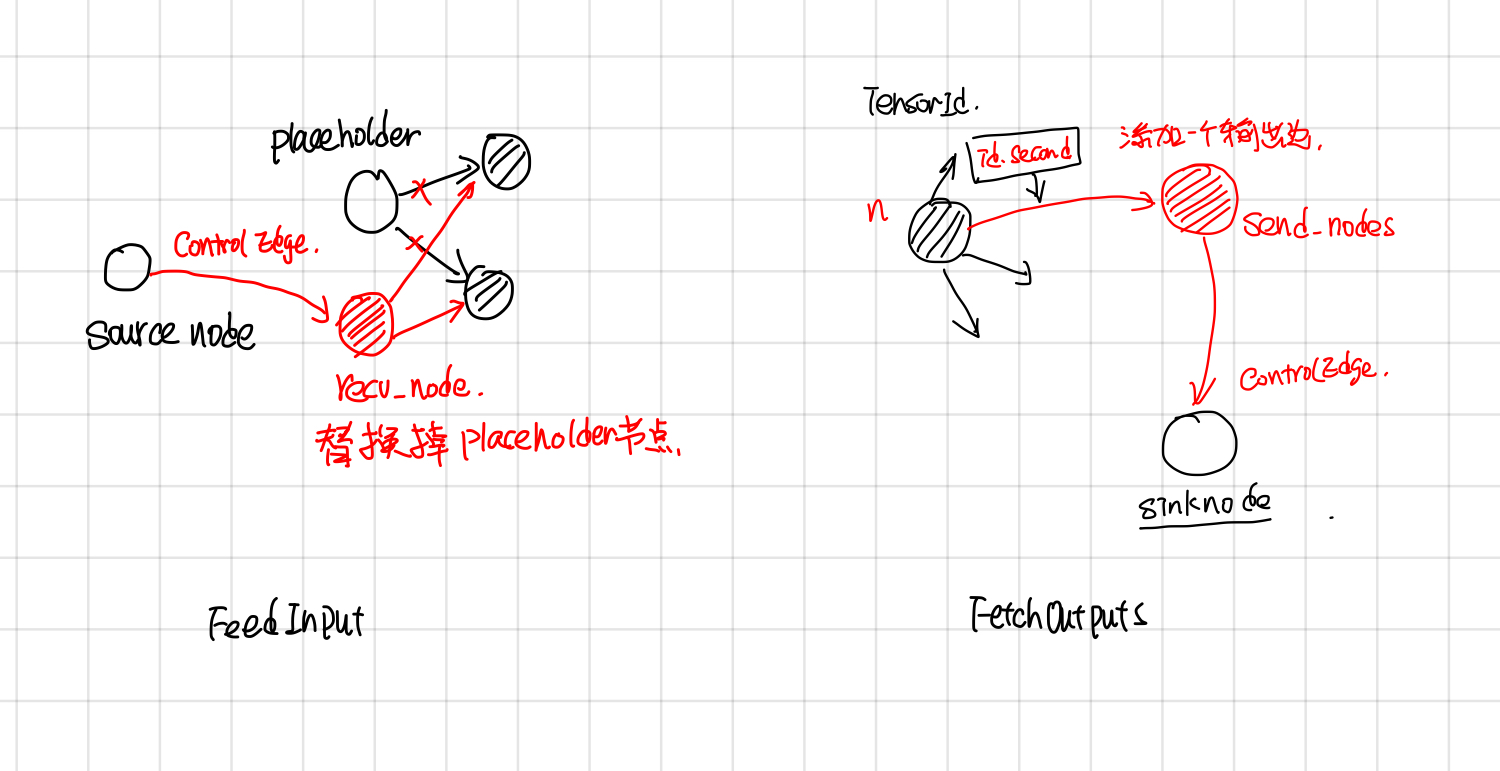 placeholder
Control Edge.
source node
recv_node.
替换掉 placeholder节点.
FeedInput
TensorId.
id.second
添加一个输出边.
n
send_nodes
ControlEdge.
sinknode
FetchOutputs